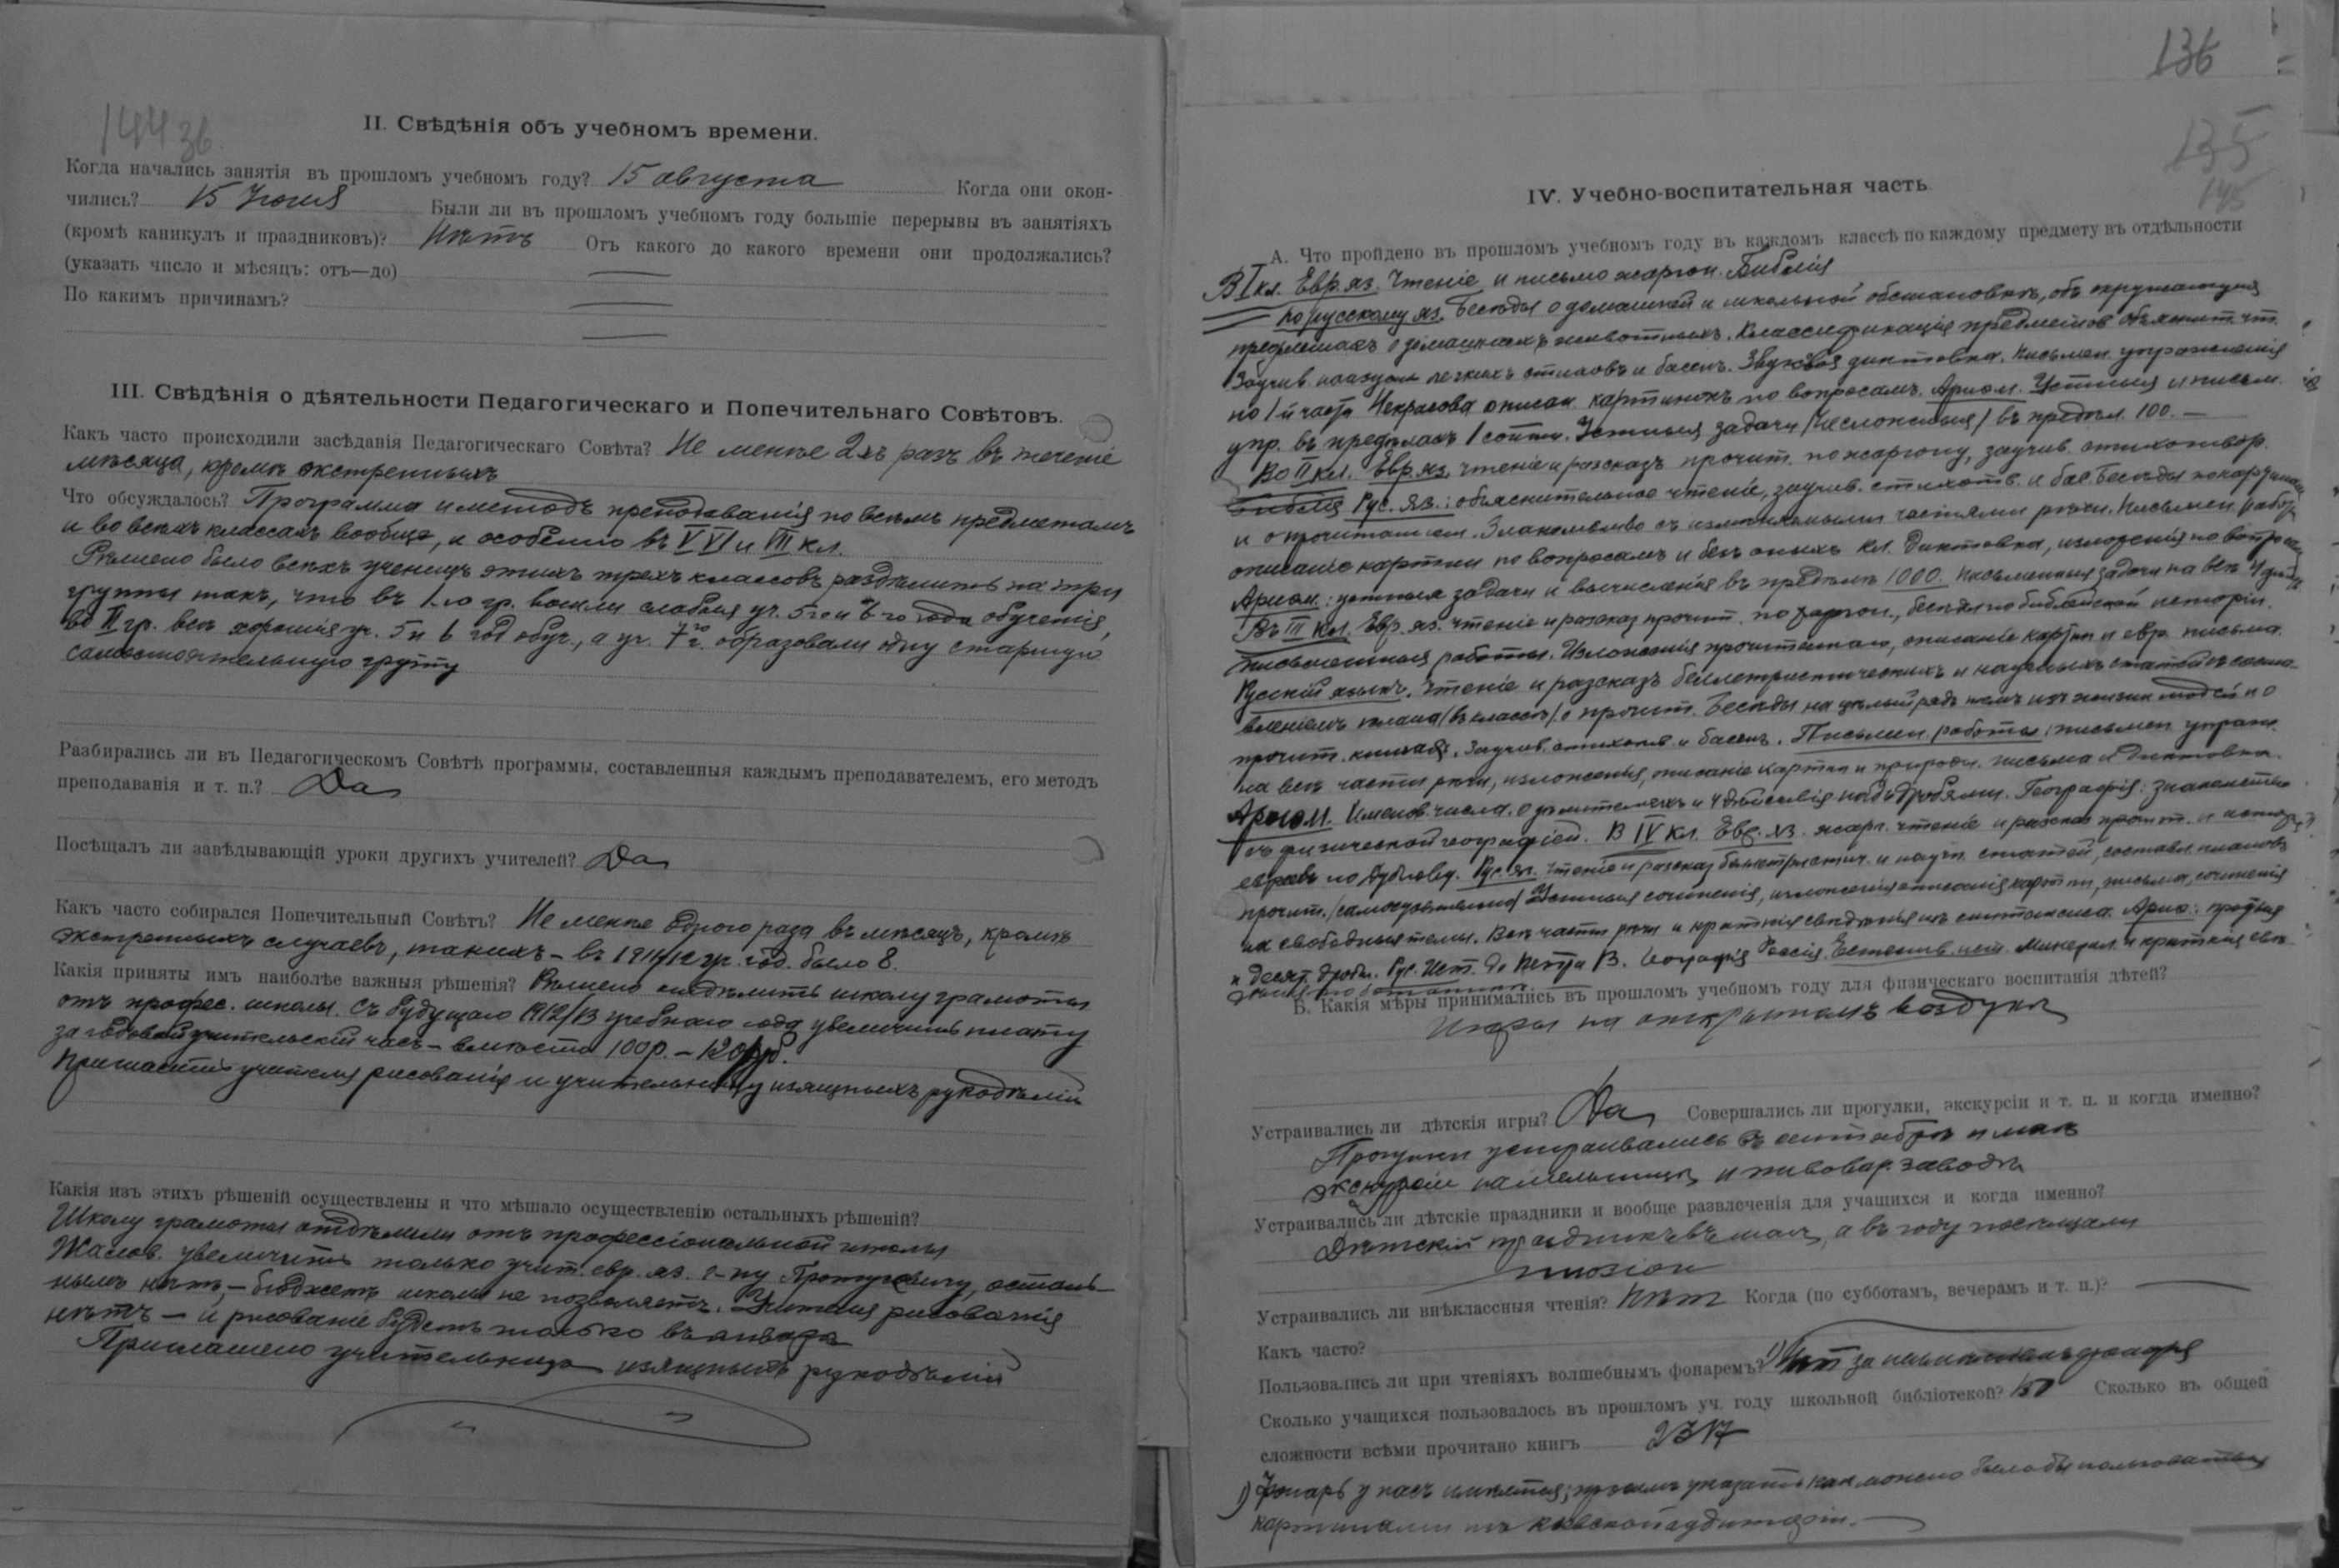 144 об.
II. Свѣдѣнія объ учебномъ времени.
Когда начались занятія въ прошломъ учебномъ году? 15 августа Когда они окон-
чились? 15 Іюня Были ли въ прошломъ учебномъ году большіе перерывы въ занятіяхъ
(кромѣ каникулъ и праздниковъ)? Нѣтъ Отъ какого до какого времени они продолжались?
(указать число и мѣсяцъ: отъ—до)
По какимъ причинамъ?
III. Свѣдѣнія о дѣятельности Педагогическаго и Попечительнаго Совѣтовъ.
Какъ часто происходили засѣданія Педагогическаго Совѣта? Не менѣе 2хъ разъ въ теченіе
мѣсяца, кромѣ экстренныхъ
Что обсуждалось? Программа и методъ преподаванія по всѣмъ предметамъ
и во всѣхъ классахъ вообще, и особенно въ V VI и VII кл.
Рѣшено было всѣхъ ученицъ этихъ трехъ классовъ раздѣлить на три
группы такъ, что въ 1-ю гр. вошли слабыя уч. 5го и 6-го года обученія,
во II гр. всѣ хорошія уч. 5 и 6 год обуч., а уч. 7го г. образовали одну старшую
самостоятельную группу
Разбирались ли въ Педагогическомъ Совѣтѣ программы, составленныя каждымъ преподавателемъ, его методъ
преподаванія и т. п.? Да
Посѣщалъ ли завѣдывающій уроки другихъ учителей? Да
Какъ часто собирался Попечительный Совѣтъ? Не менѣе одного раза въ мѣсяцъ, кромѣ
экстренныхъ случаевъ, такихъ – въ 1911/12 уч. год. было 8.
Какія приняты имъ наиболѣе важныя рѣшенія? Рѣшено отдѣлить школу грамоты
отъ профес. школы. Съ будущаго 1912/13 учебнаго года увеличить плату
за годовой учительскій часъ – вмѣсто 100 р. – 120 руб.
Пригласить учителя рисованія и учительницу изящныхъ рукодѣлій
Какія изъ этихъ рѣшеній осуществлены и что мѣшало осуществленію остальныхъ рѣшеній?
Школу грамоты отдѣлили отъ профессіональной школы
Жалов. увеличить только учит. евр. яз. г-ну осталь-
нымъ нѣтъ, – бюджетъ школы не позволяетъ. Учителя рисованія
нѣтъ – и рисованіе будетъ только въ январѣ
Приглашена учительница изящныхъ рукодѣлій
136
135
145
IV. Учебно-воспитательная часть
А. Что пройдено въ прошломъ учебномъ году въ каждомъ классѣ по каждому предмету въ отдѣльности
В I кл. Евр. яз. Чтеніе и письмо жаргон. Библія
По русскому яз. Бесѣды о домашней и школьной обстановкѣ, объ окружающихъ
предметахъ о домашнихъ животныхъ. Классификація предметов. Объяснит. чт.
Заучив. наизусть легкихъ стиховъ и басенъ. Звуковая диктовка. Письмен. упражненія
по 1-й части Некрасова описан. картинокъ по вопросамъ. Ариѳм. Устныя и письм.
упр. въ предѣлахъ 1 сотни. Устныя задачи (несложныя) въ предѣл. 100. –
Во II кл. Евр. яз. чтеніе и разсказъ прочит. по жаргону, заучив. стихотвор.
Библія Рус. яз.: объяснительное чтеніе, заучив. стихотв. и бас. Бесѣды по картинамъ
и о прочитанном. Знакомство съ измѣняемыми частями рѣчи. Письмен. работы
описаніе картин по вопросамъ и безъ оныхъ кл. Диктовка, изложенія по вопросамъ
Ариѳм.: устныя задачи и вычисленія въ предѣлѣ 1000. Письменныя задачи на всѣ 4 дѣйст.
Въ III кл. Евр. яз. чтеніе и разсказ прочит. по жаргон., бесѣды по библейской исторіи.
Письменныя работы. Изложенія прочитаннаго, описаніе картин и евр. письма.
Русскій языкъ. Чтеніе и разсказъ беллетристическихъ и научныхъ статей съ соста-
вленіемъ плана (въ классѣ) о прочит. Бесѣды на цѣлый рядъ темъ изъ жизни людей и о
прочит. книгахъ. Заучив. стихотв. и басенъ. Письмен. работы: письмен. упражн.
на всѣ части рѣчи, изложенья, описаніе картин и природы. письма и диктовка.
Ариѳм. Именов. числа. О дѣлителяхъ и 4 дѣйствія надъ дробями. Географія: знакомство
съ физической географіей. В IV кл. Евр. яз. жарг. чтеніе и разсказ прочит. и истор.
евреевъ по Дубнову. Рус. яз. Чтеніе и разсказ беллетристич. и научн. статей, составл. плановъ
прочит. (самостоятельно) Устныя сочиненія, изложенія описанія картин, письма, сочиненія
на свободныя темы. Всѣ части рѣчи и краткія свѣдѣнія изъ синтаксиса. Ариѳ.: простыя
и десят. дроби. Рус. Ист. до Петра В. Географія Россія. Естеств. ист. Минерал. и краткія свѣ-
дѣнія по ботаникѣ.
Б. Какія мѣры принимались въ прошломъ учебномъ году для физическаго воспитанія дѣтей?
Игры на открытомъ воздухѣ
Устраивались ли дѣтскія игры? Да Совершались ли прогулки, экскурсіи и т. п. и когда именно?
Прогулки устраивались въ сентябрѣ и маѣ
экскурсіи на мельницу и пивовар. заводъ
Устраивались ли дѣтскіе праздники и вообще развлеченія для учащихся и когда именно?
Дѣтскій праздникъ въ маѣ, а въ году посѣщали
иллюзіон
Устраивались ли внѣклассныя чтенія? Нѣт Когда (по субботамъ, вечерамъ и т. п.)?
Какъ часто?
Пользовались ли при чтеніяхъ волшебнымъ фонаремъ? 1) Нѣт за неимѣніемъ фонаря
Сколько учащихся пользовалось въ прошломъ уч. году школьной библіотекой? 151 Сколько въ общей
сложности всѣми прочитано книгъ 2317
1) Фонарь у насъ имѣется; просимъ указать как можно было бы пользоваться
картинами изъ кіевской аудиторіи. –